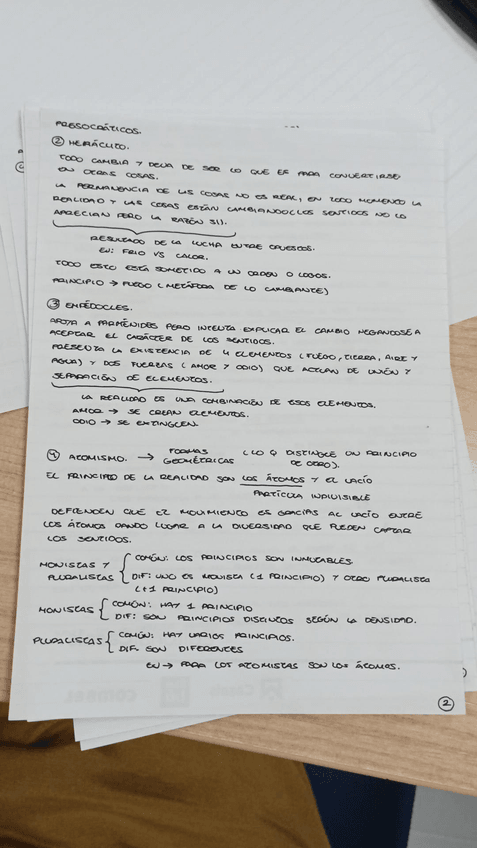 PRESOCRÁTICOS.
② HERÁCLITO.
TODO CAMBIA Y DEJA DE SER LO QUE ES PARA CONVERTIRSE
EN OTRAS COSAS.
LA PERMANENCIA DE LAS COSAS NO ES REAL, EN TODO MOMENTO LA
REALIDAD Y LAS COSAS ESTÁN CAMBIANDO (LOS SENTIDOS NO LO
APRECIAN PERO LA RAZÓN SÍ).
RESULTADO DE LA LUCHA ENTRE OPUESTOS.
EJ: FRIO VS CALOR.
TODO ESTO ESTÁ SOMETIDO A UN ORDEN O LOGOS.
PRINCIPIO → FUEGO (METÁFORA DE LO CAMBIANTE)
③ EMPÉDOCLES.
APOYA A PARMÉNIDES PERO INTENTA EXPLICAR EL CAMBIO NEGANDOSE A
ACEPTAR EL CARÁCTER DE LOS SENTIDOS.
PRESENTA LA EXISTENCIA DE 4 ELEMENTOS (FUEGO, TIERRA, AIRE Y
AGUA) Y DOS FUERZAS (AMOR Y ODIO) QUE ACTUAN DE UNIÓN Y
SEPARACIÓN DE ELEMENTOS.
LA REALIDAD ES UNA COMBINACIÓN DE ESOS ELEMENTOS.
AMOR → SE CREAN ELEMENTOS.
ODIO → SE EXTINGUEN.
④ ATOMISMO. → FORMAS GEOMÉTRICAS (LO Q DISTINGUE UN PRINCIPIO DE OTRO).
EL PRINCIPIO DE LA REALIDAD SON LOS ÁTOMOS Y EL VACÍO
PARTÍCULA INDIVISIBLE
DEFIENDEN QUE EL MOVIMIENTO ES GRACIAS AL VACÍO ENTRE
LOS ÁTOMOS DANDO LUGAR A LA DIVERSIDAD QUE PUEDEN CAPTAR
LOS SENTIDOS.
MONISTAS Y PLURALISTAS { COMÚN: LOS PRINCIPIOS SON INMUTABLES.
DIF: UNO ES MONISTA (1 PRINCIPIO) Y OTRO PLURALISTA
(+1 PRINCIPIO)
MONISTAS { COMÚN: HAY 1 PRINCIPIO
DIF: SON PRINCIPIOS DISTINTOS SEGÚN LA DENSIDAD.
PLURALISTAS { COMÚN: HAY VARIOS PRINCIPIOS.
DIF: SON DIFERENTES
EJ → PARA LOS ATOMISTAS SON LOS ÁTOMOS.
②